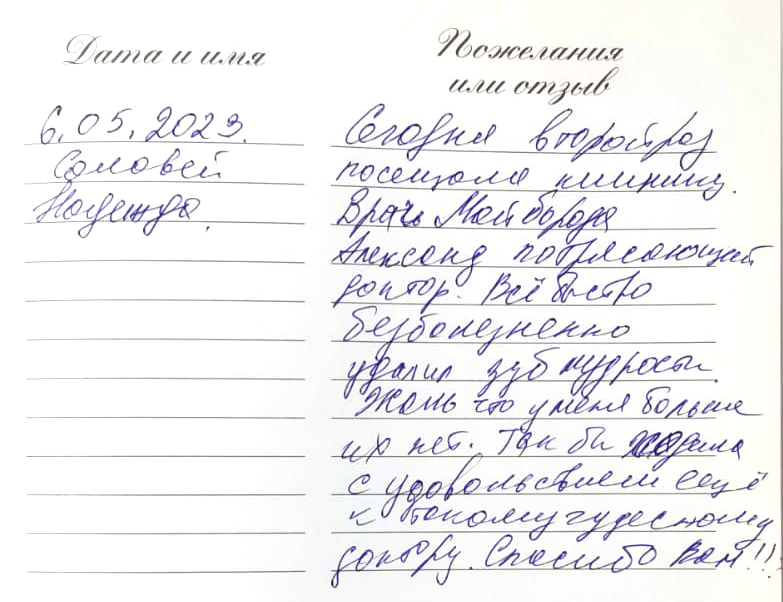 Дата и имя
6.05.2023.
Соловей
Надежда.
Пожелания
или отзыв
Сегодня второй раз
посещала клинику.
Врач Майборода
Александ потрясающий
доктор. Всё быстро
безболезненно
удалил зуб мудрости.
Жаль что у меня больше
их нет. Так бы ходила
с удовольствием ещё
к такому чудесному
доктору. Спасибо Вам!!!